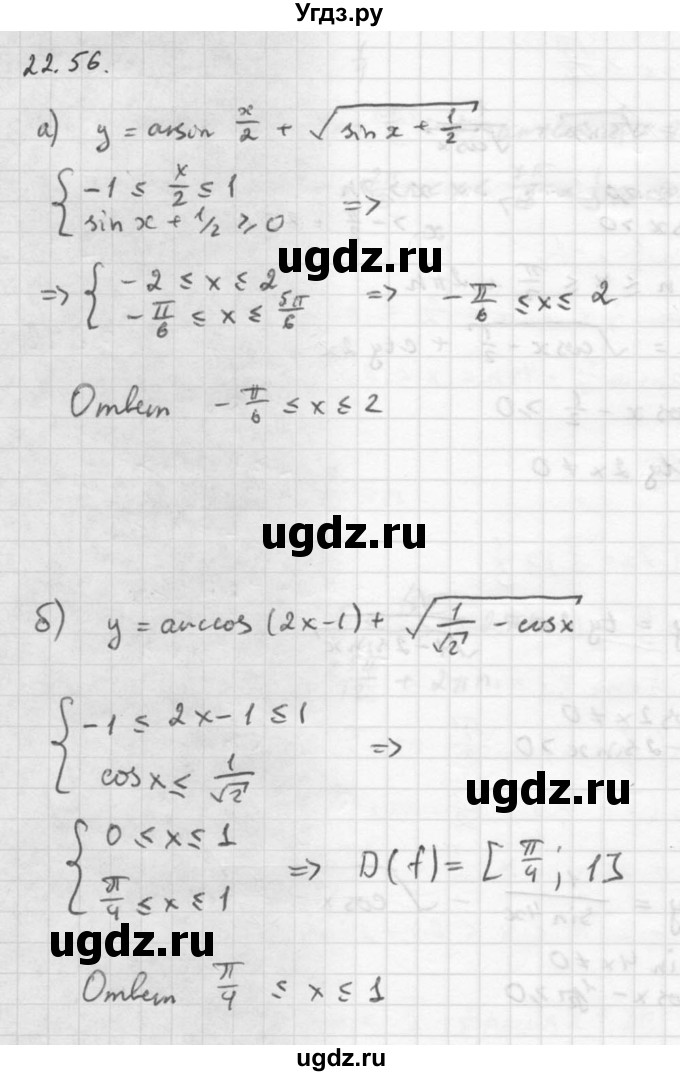 Угдз.ру
22.56.
а) y = arcsin x/2 + √(sin x + 1/2)
{ -1 ≤ x/2 ≤ 1
sin x + 1/2 ≥ 0 =>
=> { -2 ≤ x ≤ 2
-π/6 ≤ x ≤ 5π/6 => -π/6 ≤ x ≤ 2
ugdz.ru
Ответ -π/6 ≤ x ≤ 2
ugdz.ru
б) y = arccos (2x-1) + √(1/√2 - cosx)
{ -1 ≤ 2x-1 ≤ 1
cosx ≤ 1/√2 =>
ugdz.ru
{ 0 ≤ x ≤ 1
π/4 ≤ x ≤ 1 => D(f) = [π/4; 1]
ugdz.ru
Ответ π/4 ≤ x ≤ 1
ugdz.ru